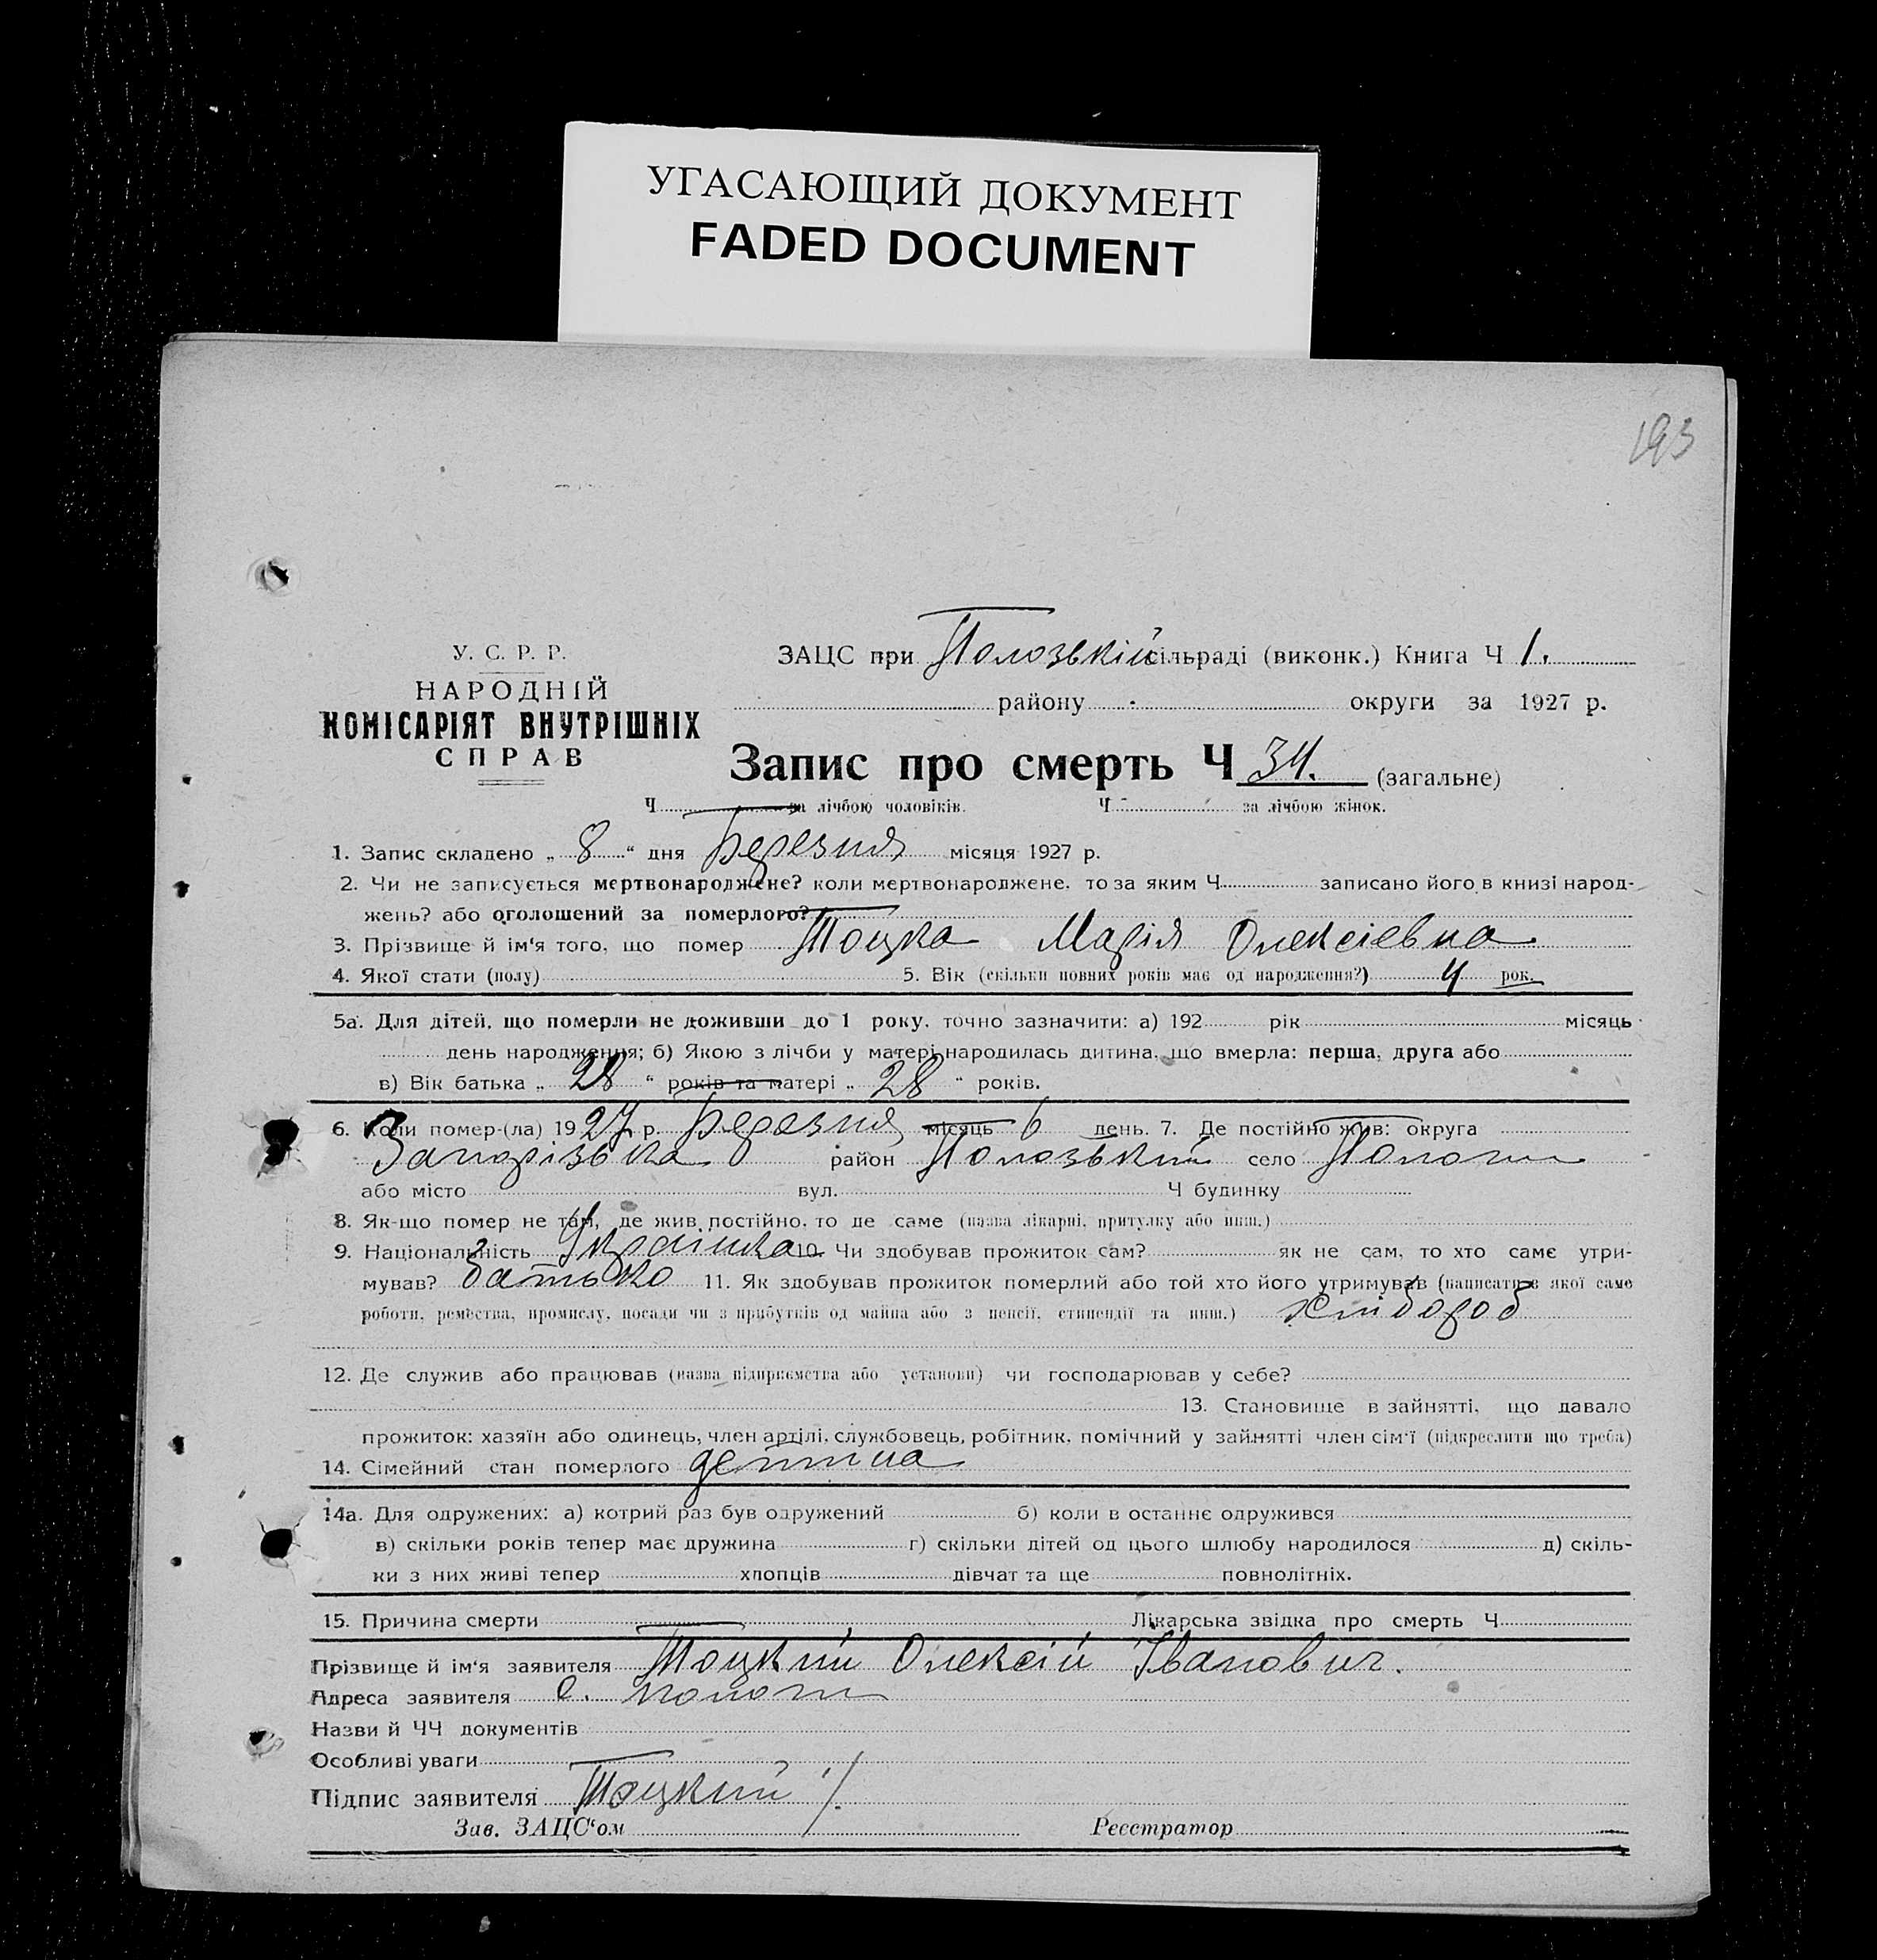 УГАСАЮЩИЙ ДОКУМЕНТ
FADED DOCUMENT
193
У. С. Р. Р.
НАРОДНІЙ
КОМІСАРІЯТ ВНУТРІШНІХ
СПРАВ
ЗАЦС при Пологській сільраді (виконк.) Книга Ч 1.
району округи за 1927 р.
Запис про смерть Ч 34. (загальне)
Ч за лічбою чоловіків. Ч за лічбою жінок.
1. Запис складено „ 8 “ дня Березня місяця 1927 р.
2. Чи не записується мертвонароджене? коли мертвонароджене, то за яким Ч записано його в книзі народ-
жень? або оголошений за померлого?
3. Прізвище й ім‘я того, що помер Тоцка Марія Олексіевна
4. Якої стати (полу) 5. Вік (скільки повних років має од народження?) 4 рок.
5а. Для дітей, що померли не доживши до 1 року, точно зазначити: а) 192 рік місяць
день народження; б) Якою з лічби у матері народилась дитина, що вмерла: перша, друга або
в) Вік батька „ 28 “ років та матері „ 28 “ років.
6. Коли помер-(ла) 1927 р. Березня місяць 6 день. 7. Де постійно жив: округа
Запорізька район Пологський село Пологи
або місто вул. Ч будинку
8. Як-що помер не там, де жив постійно, то де саме (назва лікарні, притулку або инш.)
9. Національність Українка 10. Чи здобував прожиток сам? як не сам, то хто саме утри-
мував? батько 11. Як здобував прожиток померлий або той хто його утримував (написати з якої саме
роботи, ремества, промислу, посади чи з прибутків од майна або з пенсії, стипендії та инш.) хлібороб
12. Де служив або працював (назва підприємства або установи) чи господарював у себе?
13. Становище в зайнятті, що давало
прожиток: хазяїн або одинець, член артілі, службовець, робітник, помічний у зайнятті член сім‘ї (підкреслити що треба)
14. Сімейний стан померлого детина
14а. Для одружених: а) котрий раз був одружений б) коли в останнє одружився
в) скільки років тепер має дружина г) скільки дітей од цього шлюбу народилося д) скіль-
ки з них живі тепер хлопців дівчат та ще повнолітніх.
15. Причина смерти Лікарська звідка про смерть Ч
Прізвище й ім‘я заявителя Тоцкий Олексій Іванович.
Адреса заявителя с. пологи
Назви й ЧЧ документів
Особливі уваги
Підпис заявителя Тоцкий
Зав. ЗАЦС‘ом Реєстратор